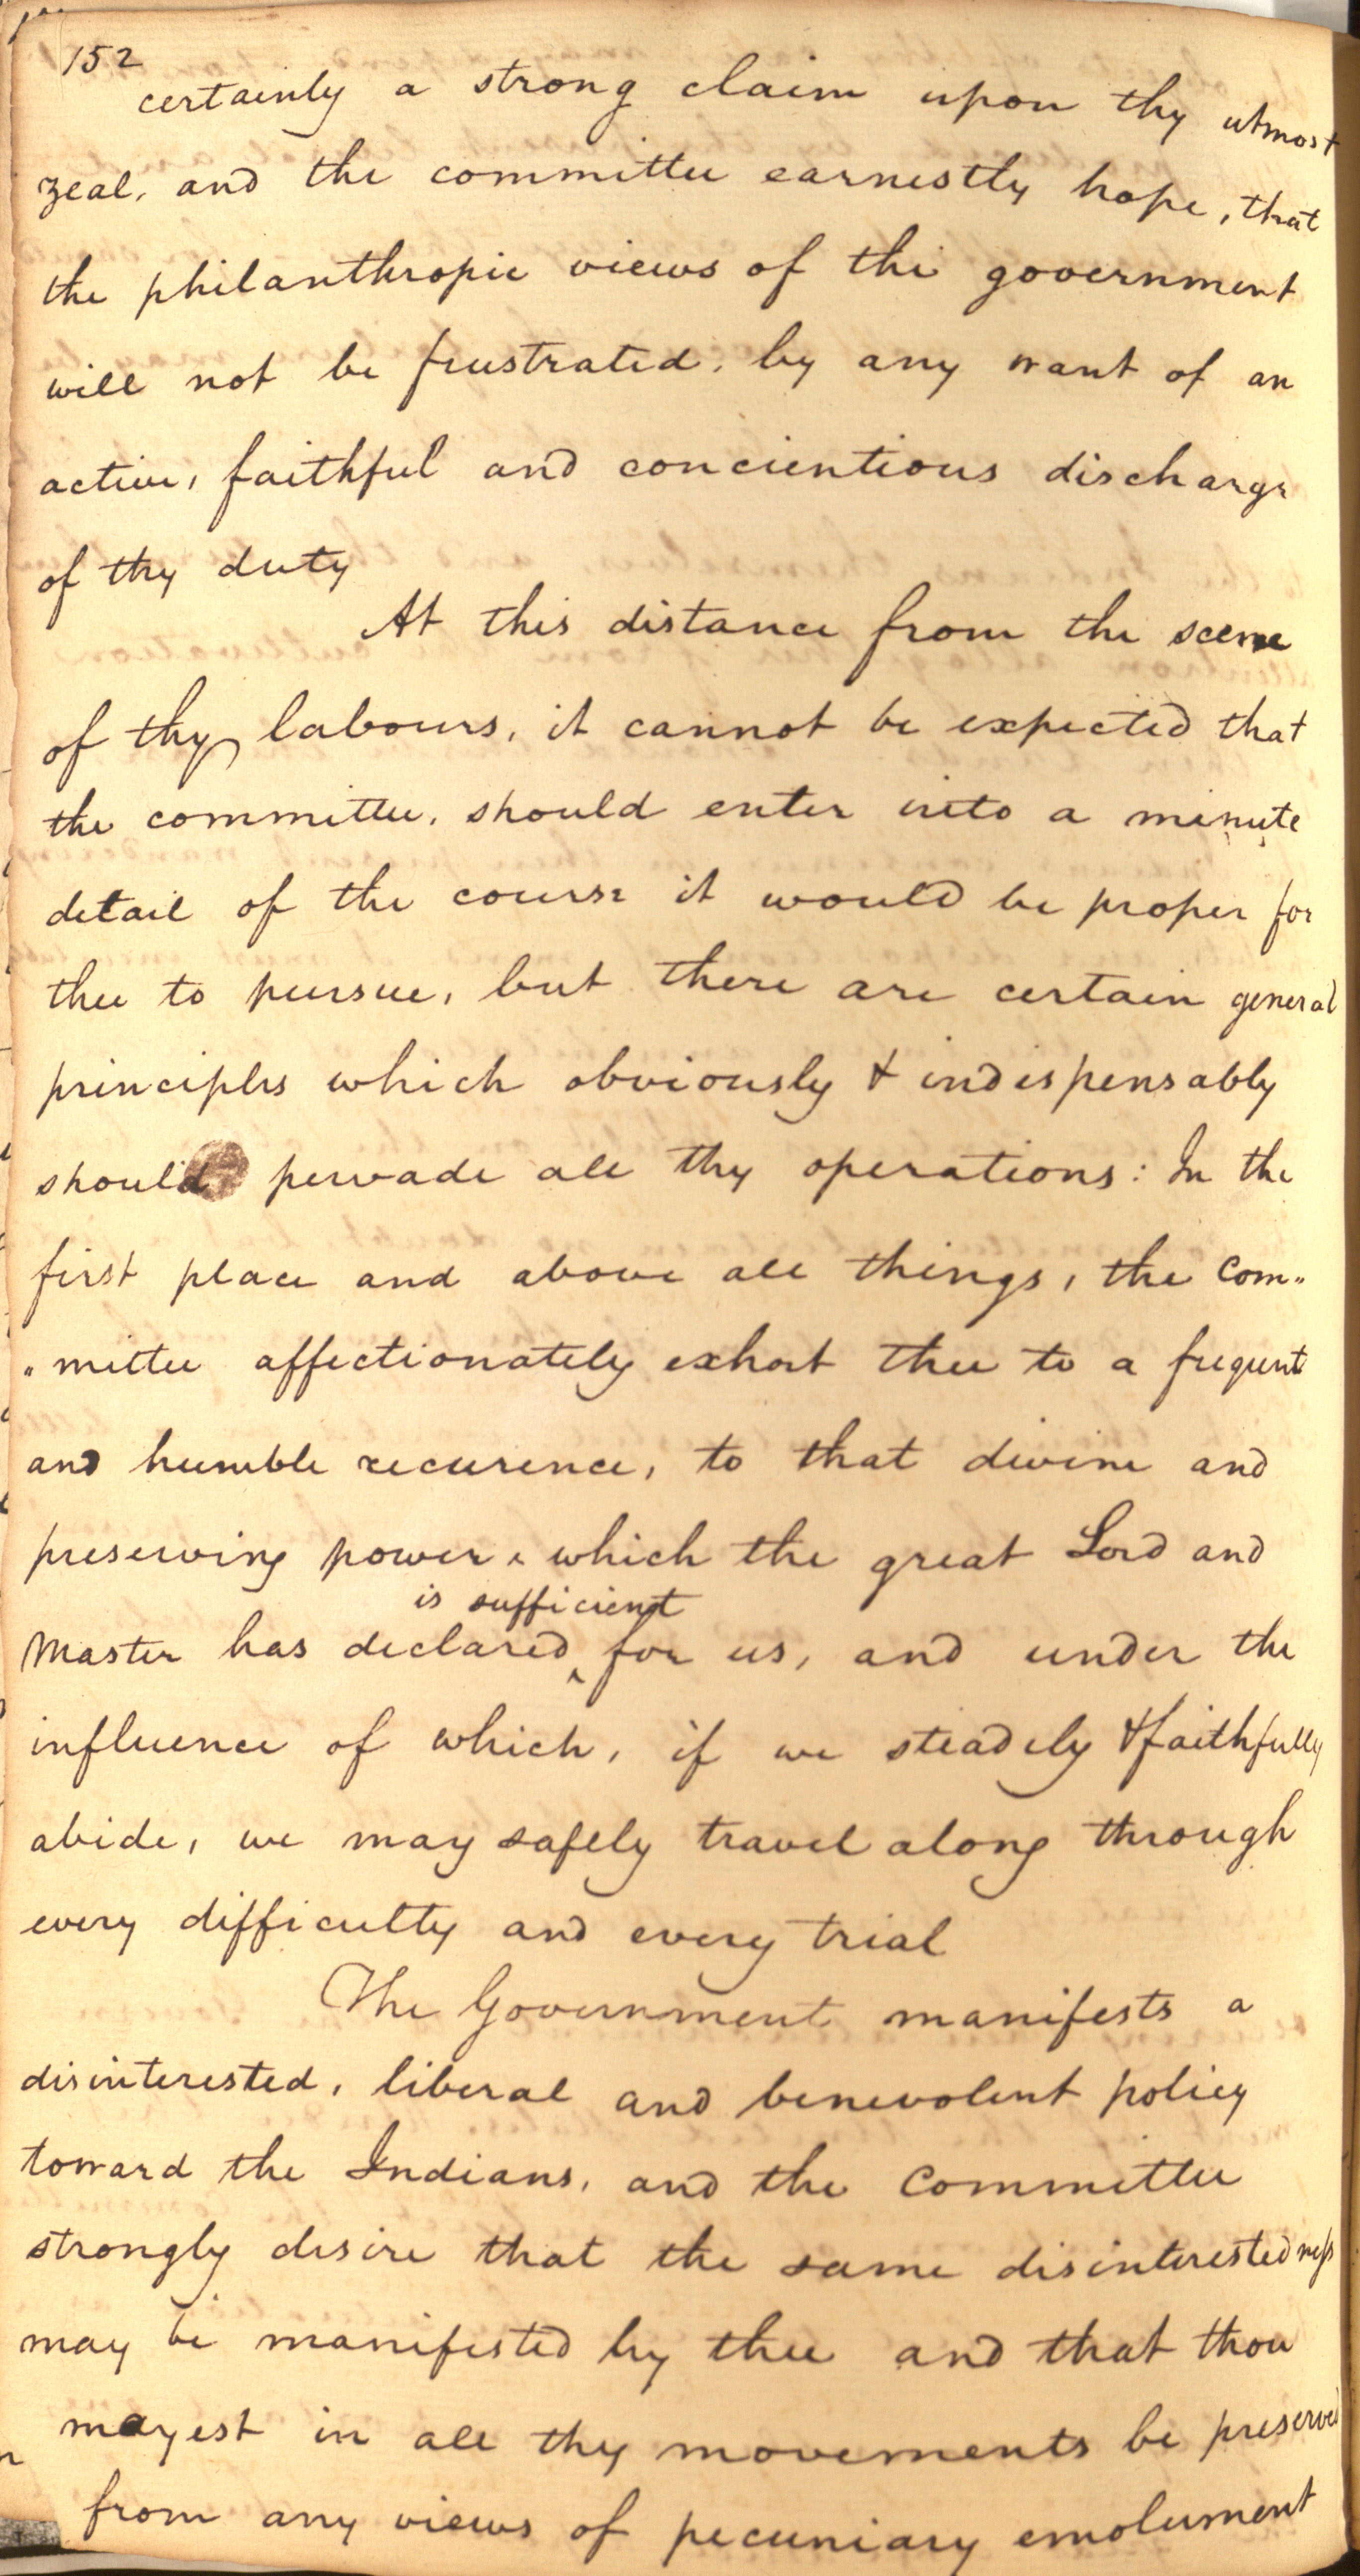 152
certainly a strong claim upon thy utmost
zeal, and the committee earnestly hope, that
the philanthropic views of the government
will not be frustrated, by any want of an
active, faithful and concientious discharge
of thy duty
At this distance from the scene
of thy labours, it cannot be expected that
the committee, should enter into a minute
detail of the course it would be proper for
thee to pursue, but there are certain general
principles which obviously & indispensably
should pervade all thy operations: In the
first place and above all things, the Com„
„mittee affectionately exhort thee to a frequent
and humble recurence, to that divine and
preserving power, which the great Lord and
is sufficient
Master has declared ‸ for us, and under the
influence of which, if we steadily & faithfully
abide, we may safely travel along through
every difficulty and every trial
The Government manifests a
disinterested, liberal and benevolent policy
toward the Indians, and the Committee
strongly desire that the same disinterestedness
may be manifested by thee and that thou
mayest in all thy movements be preserved
from any views of pecuniary emolument